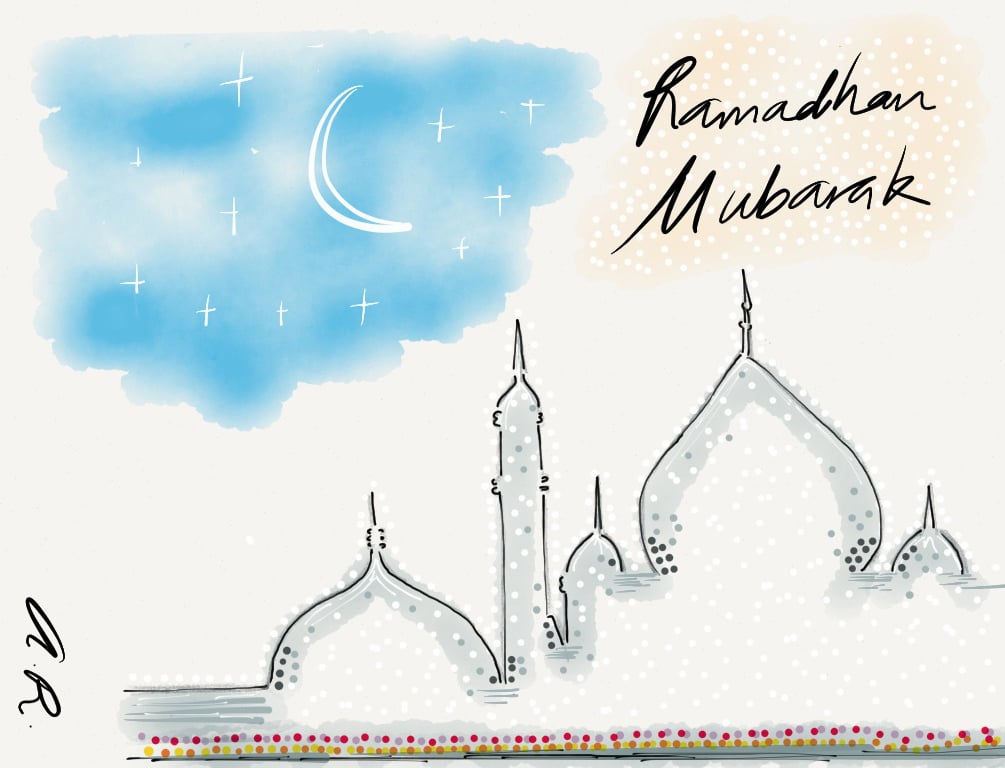 Ramadhan
Mubarak
a.R.